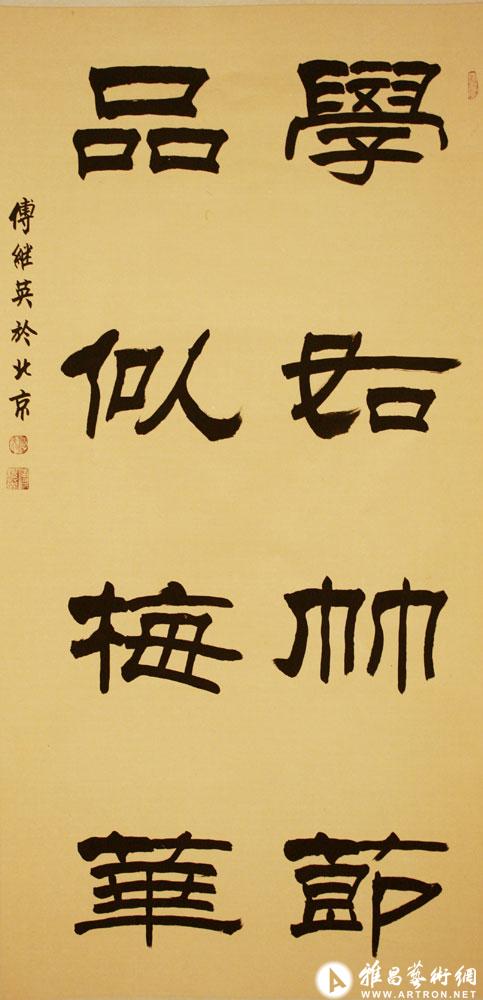 學如竹節
品似梅華
傅継英於北京
雅昌藝術網
WWW.ARTRON.NET